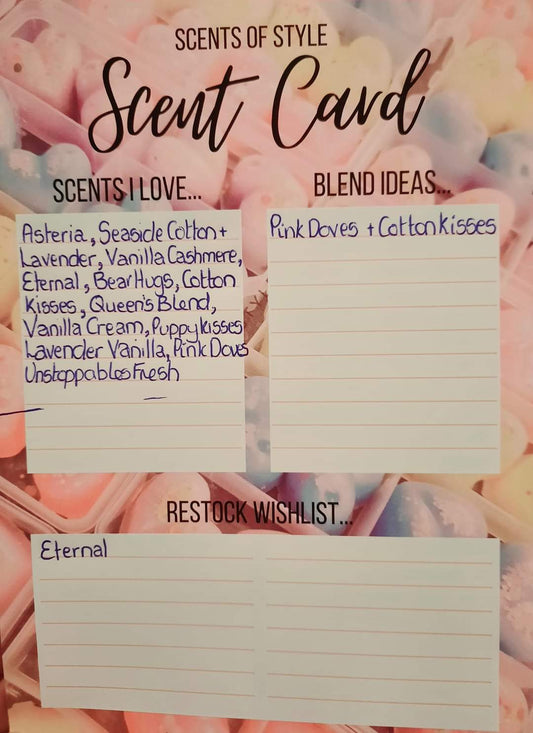 SCENTS OF STYLE
Scent Card
SCENTS I LOVE...
Asteria, Seaside Cotton +
Lavender, Vanilla Cashmere,
Eternal, Bear Hugs, Cotton
Kisses, Queen's Blend,
Vanilla Cream, Puppy kisses
Lavender Vanilla, Pink Doves
Unstoppables Fresh
BLEND IDEAS...
Pink Doves + Cotton Kisses
RESTOCK WISHLIST...
Eternal